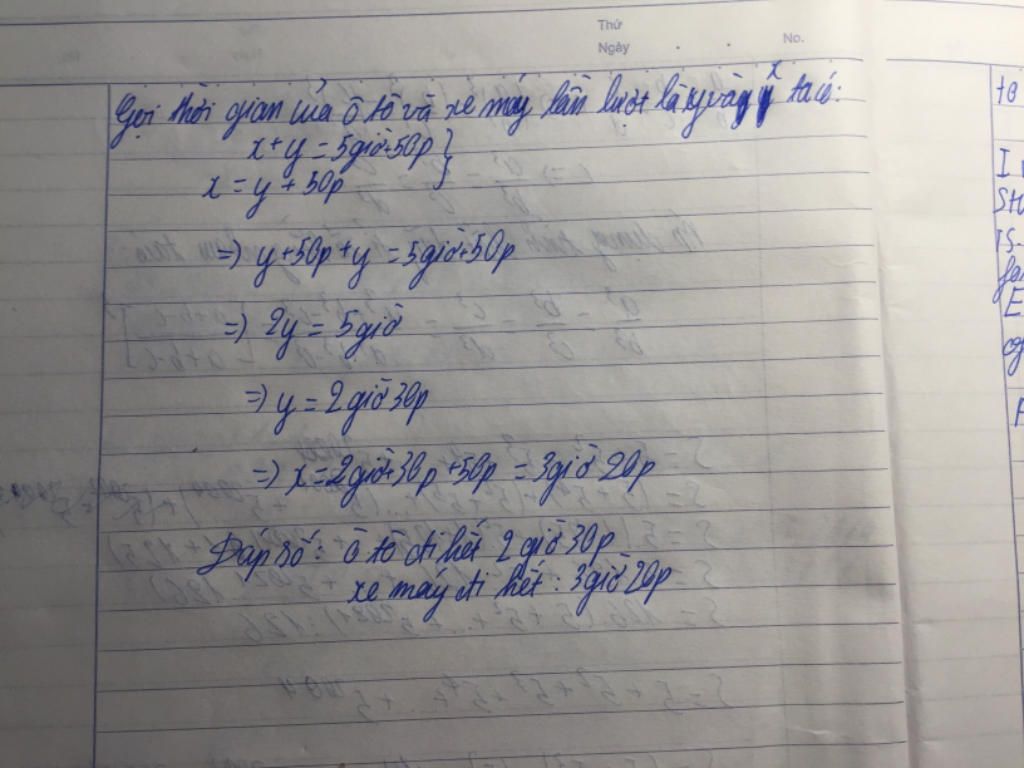 Thứ
Ngày . . No.
Gọi thời gian của ô tô và xe máy lần lượt là y và x ta có:
x + y = 5giờ+50p }
x = y + 50p
=) y+50p+y = 5giờ+50p
=) 2y = 5giờ
=) y = 2giờ 30p
=) x = 2giờ+30p +50p = 3giờ 20p
Đáp số: Ô tô đi hết 2 giờ 30p
xe máy đi hết : 3giờ 20p